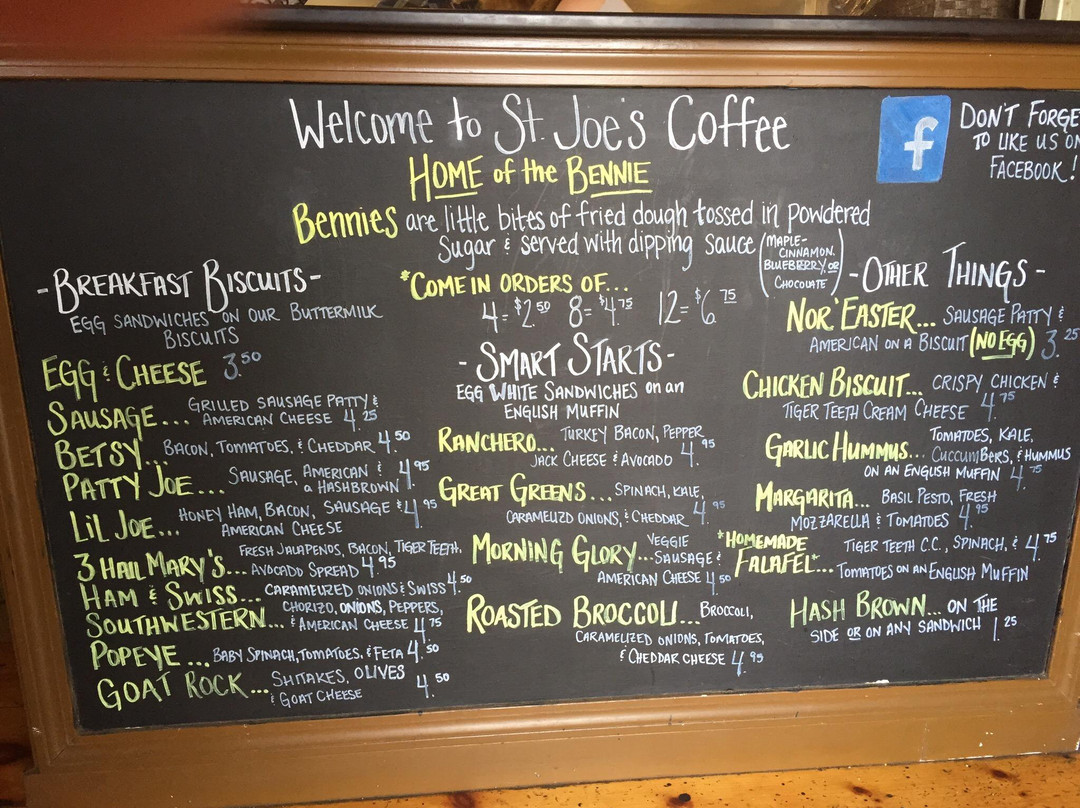 Welcome to St. Joe's Coffee
HOME of the BENNIE
Bennies are little bites of fried dough tossed in powdered
Sugar & served with dipping sauce (MAPLE-
CINNAMON,
BLUEBERRY, OR
CHOCOLATE)
*COME IN ORDERS OF...
4=$2.50 8=$4.75 12=$6.75
f
DON'T FORGE
TO LIKE US ON
FACEBOOK!
-BREAKFAST BISCUITS-
EGG SANDWICHES ON OUR BUTTERMILK
BISCUITS
EGG & CHEESE 3.50
SAUSAGE... GRILLED SAUSAGE PATTY &
AMERICAN CHEESE 4.25
BETSY... BACON, TOMATOES, & CHEDDAR 4.50
PATTY JOE... SAUSAGE, AMERICAN &
a HASHBROWN 4.95
LIL JOE... HONEY HAM, BACON, SAUSAGE &
AMERICAN CHEESE 4.95
3 HAIL MARY'S... FRESH JALAPENOS, BACON, TIGER TEETH,
AVOCADO SPREAD 4.95
HAM & SWISS... CARAMELIZED ONIONS & SWISS 4.50
SOUTHWESTERN... CHORIZO, ONIONS, PEPPERS,
& AMERICAN CHEESE 4.75
POPEYE... BABY SPINACH, TOMATOES, & FETA 4.50
GOAT ROCK... SHITAKES, OLIVES
& GOAT CHEESE 4.50
-SMART STARTS-
EGG WHITE SANDWICHES on an
ENGLISH MUFFIN
RANCHERO... TURKEY BACON, PEPPER
JACK CHEESE & AVOCADO 4.95
GREAT GREENS... SPINACH, KALE,
CARAMELIZD ONIONS, & CHEDDAR 4.95
MORNING GLORY... VEGGIE
SAUSAGE &
AMERICAN CHEESE 4.50
ROASTED BROCCOLI... BROCCOLI,
CARAMELIZED ONIONS, TOMATOES,
& CHEDDAR CHEESE 4.95
-OTHER THINGS-
NOR'EASTER... SAUSAGE PATTY &
AMERICAN ON A BISCUIT (NO EGG) 3.25
CHICKEN BISCUIT... CRISPY CHICKEN &
TIGER TEETH CREAM CHEESE 4.75
GARLIC HUMMUS... TOMATOES, KALE,
CUCCUMBERS, & HUMMUS
ON AN ENGLISH MUFFIN 4.75
MARGARITA... BASIL PESTO, FRESH
MOZZARELLA & TOMATOES 4.95
*HOMEMADE
FALAFEL*... TIGER TEETH C.C., SPINACH, & 4.75
TOMATOES ON AN ENGLISH MUFFIN
HASH BROWN... ON THE
SIDE OR ON ANY SANDWICH 1.25